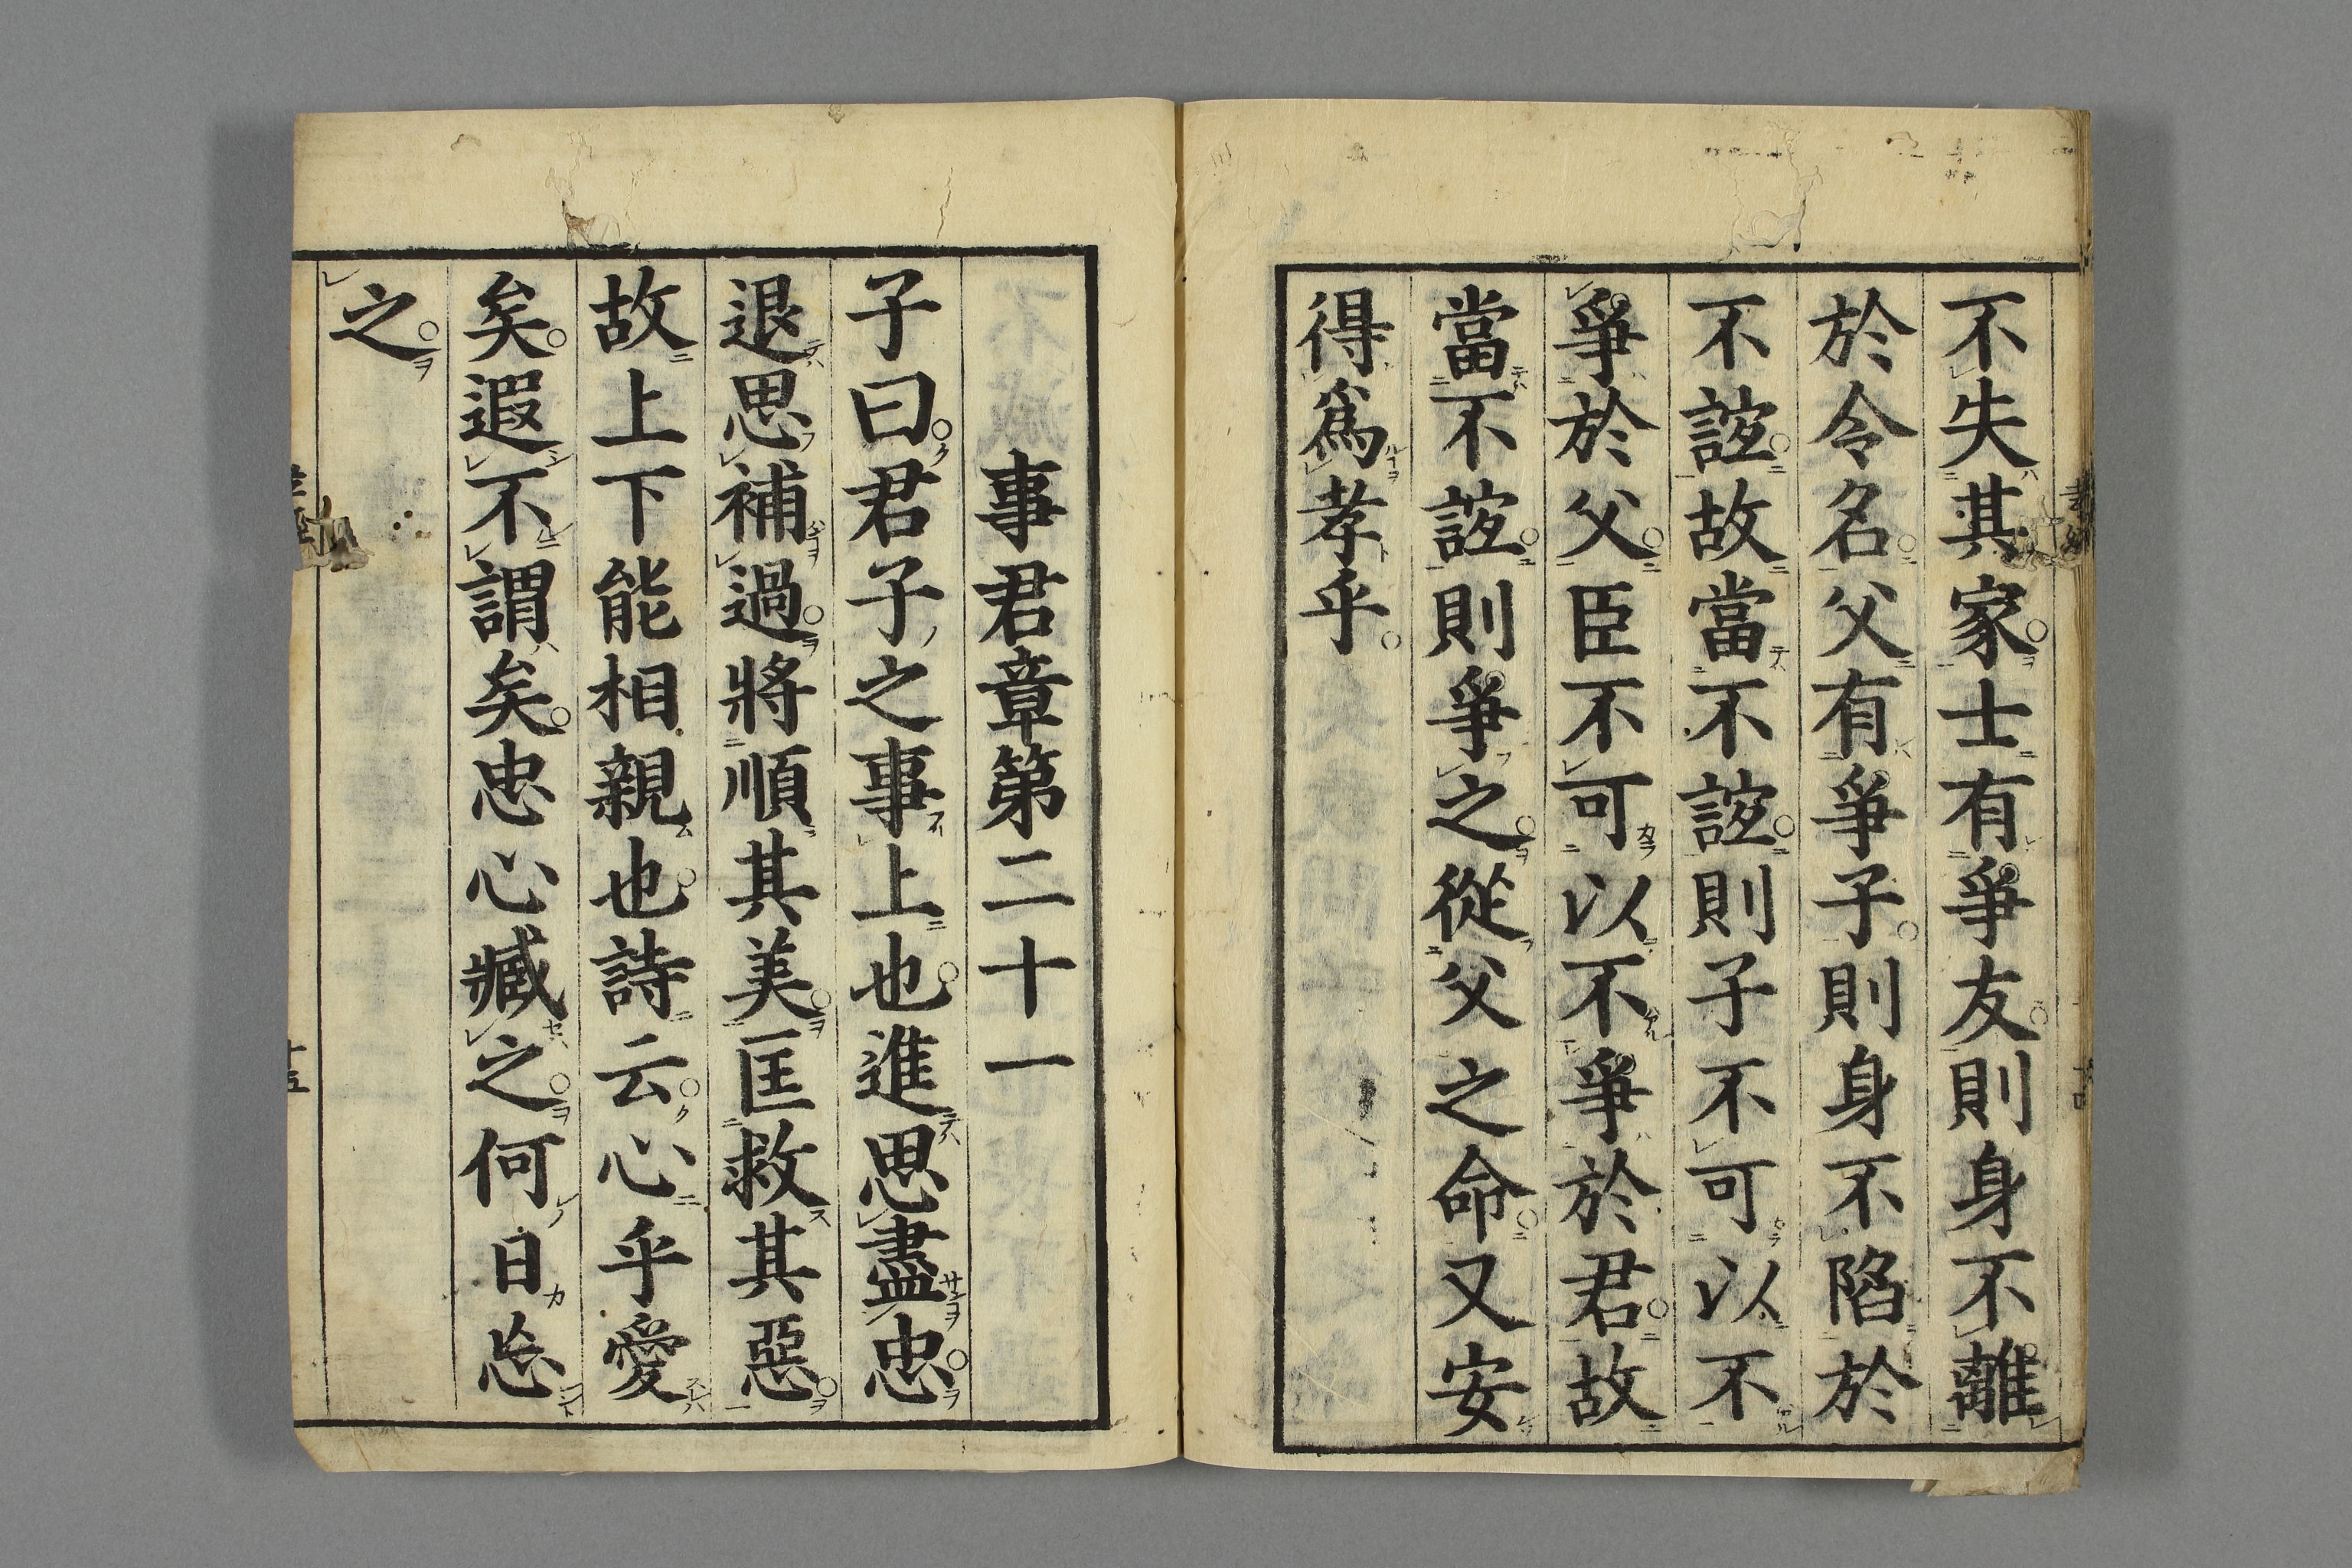 不失其家士有爭友則身不離
於令名父有爭子則身不陷於
不誼故當不誼則子不可以不
爭於父臣不可以不爭於君故
當不誼則爭之從父之命又安
得爲孝乎
事君章第二十一
子曰君子之事上也進思盡忠
退思補過將順其美匡救其惡
故上下能相親也詩云心乎愛
矣遐不謂矣忠心臧之何日忘
之
十五